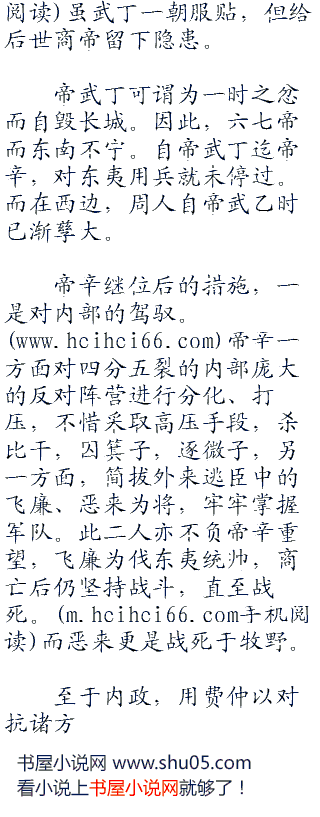 阅读)虽武丁一朝服贴，但给
后世商帝留下隐患。
帝武丁可谓为一时之忿
而自毁长城。因此，六七帝
而东南不宁。自帝武丁迄帝
辛，对东夷用兵就未停过。
而在西边，周人自帝武乙时
已渐孳大。
帝辛继位后的措施，一
是对内部的驾驭。
(www.hcihci66.com)帝辛一
方面对四分五裂的内部庞大
的反对阵营进行分化、打
压，不惜采取高压手段，杀
比干，囚箕子，逐微子，另
一方面，简拔外来逃臣中的
飞廉、恶来为将，牢牢掌握
军队。此二人亦不负帝辛重
望，飞廉为伐东夷统帅，商
亡后仍坚持战斗，直至战
死。(m.hcihci66.com手机阅
读)而恶来更是战死于牧野。
至于内政，用费仲以对
抗诸方
书屋小说网 www.shu05.com
看小说上书屋小说网就够了！